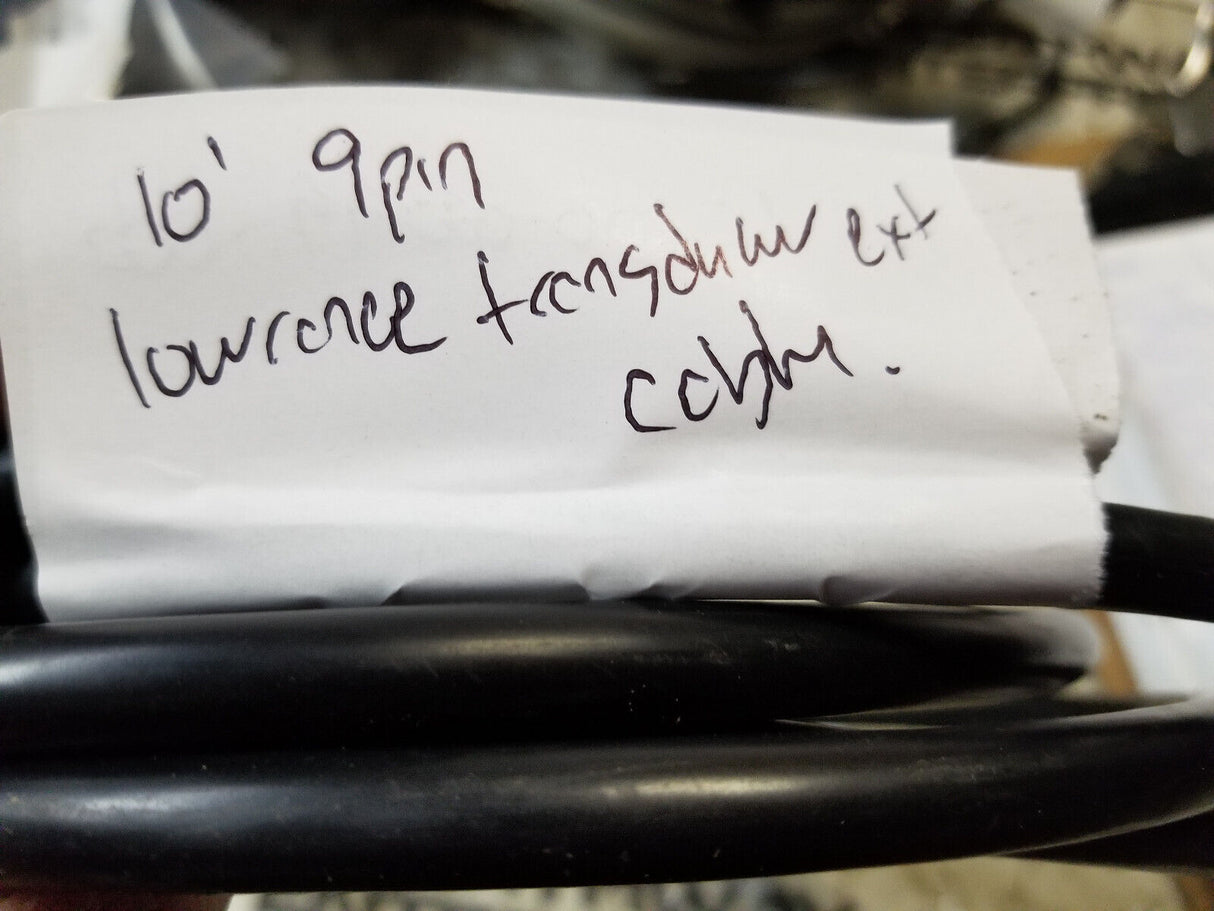 10' 9pin
lowrance transducer ext
cable.